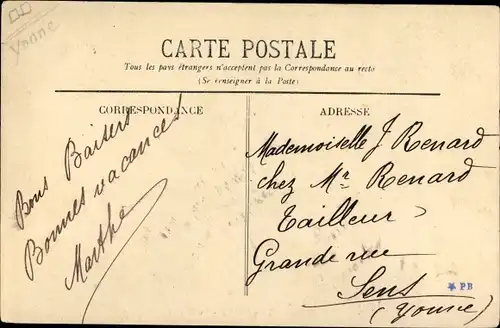 Yonne
CARTE POSTALE
Tous les pays étrangers n'acceptent pas la Correspondance au recto
(Se renseigner à la Poste)
CORRESPONDANCE
Bons Baisers
Bonnes vacances
Marthe
ADRESSE
Mademoiselle J Renard
chez Mr Renard
Tailleur
Grande rue
Sens
(Yonne)
PB